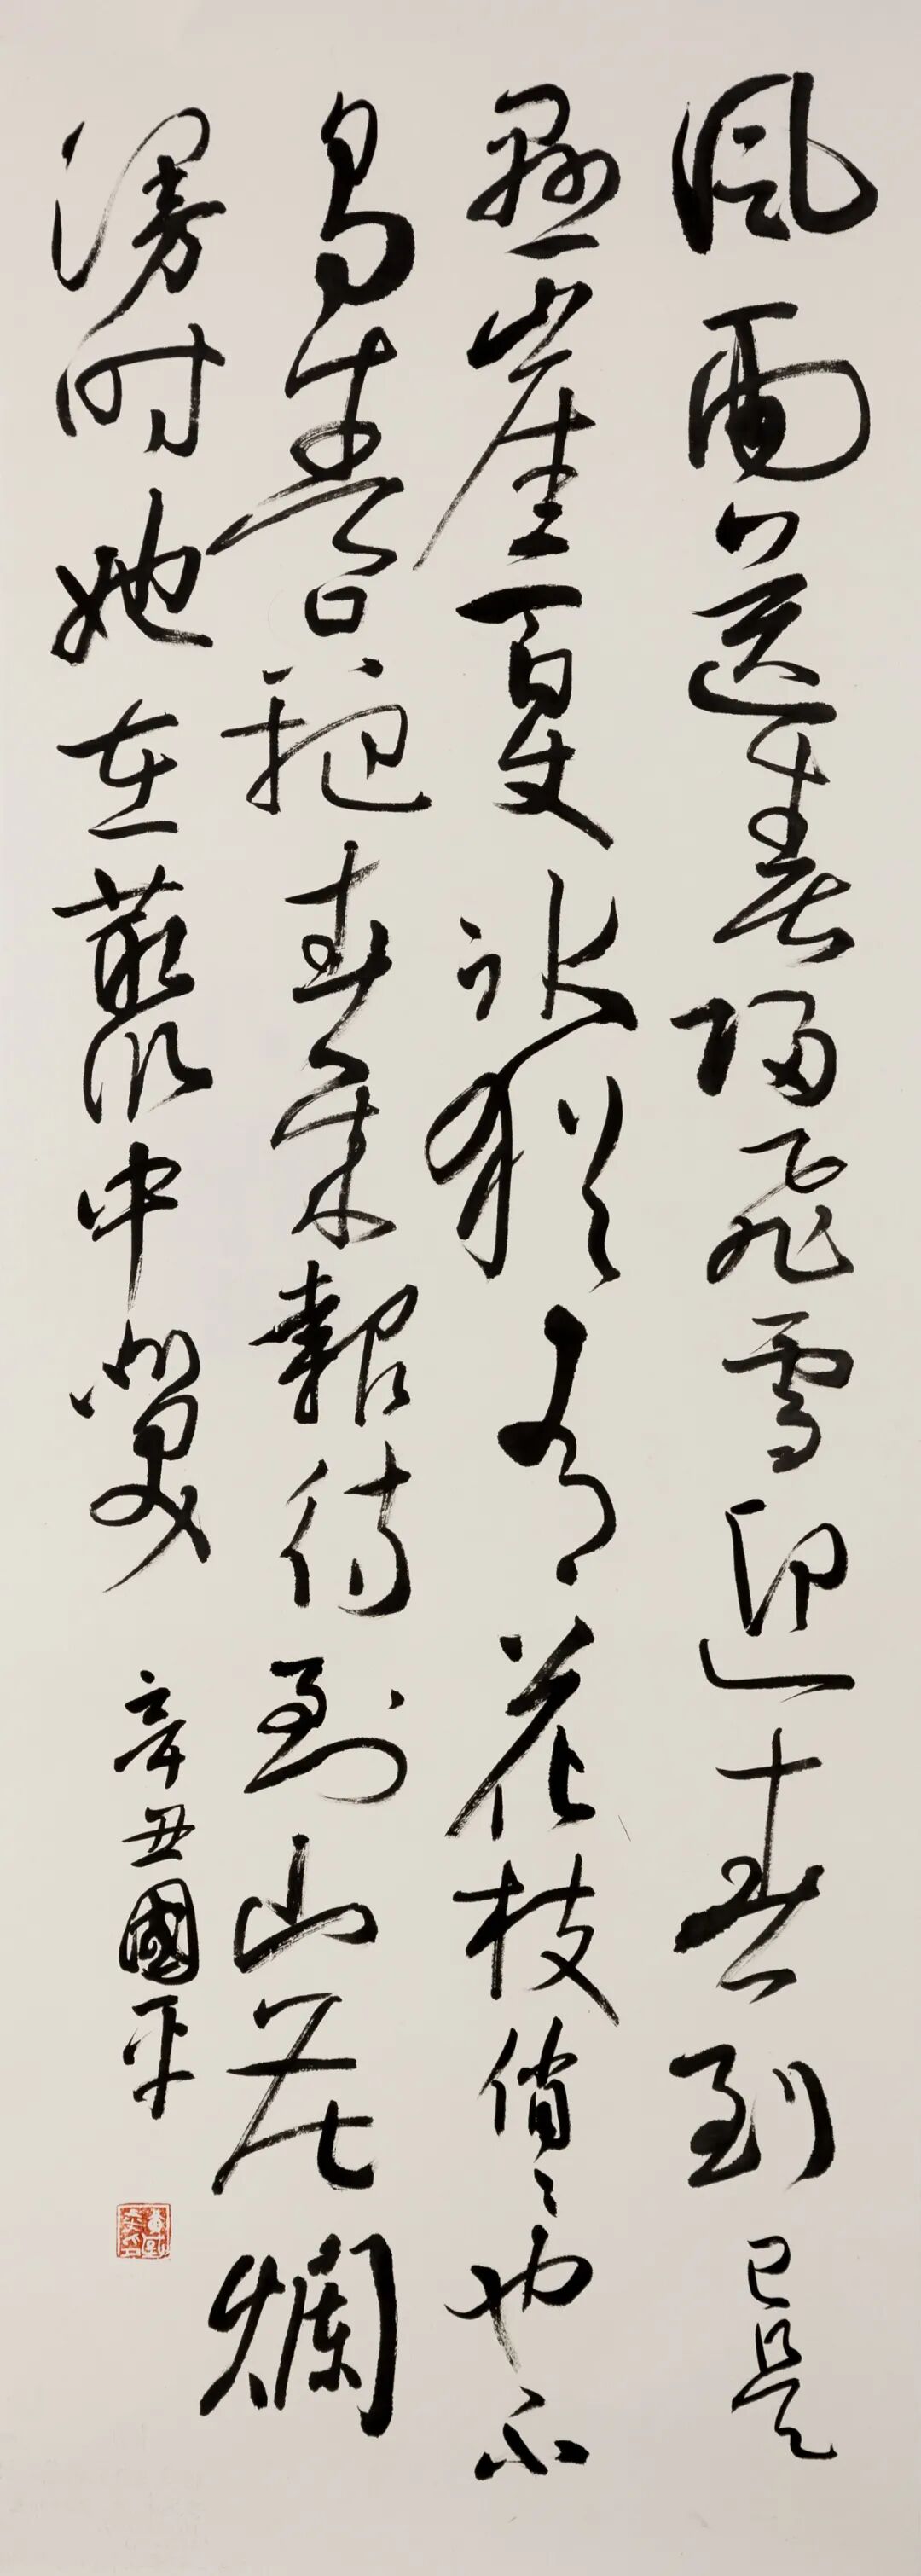 風雨送春歸飛雪迎春到已是
懸崖百丈冰猶有花枝俏々也不
爭春只把春来報待到山花爛
漫時她在叢中笑
辛丑國平